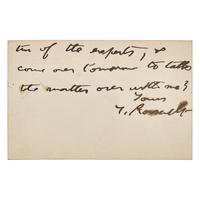 of the experts, &
come over tomorrow to talk
the matter over with me?
Yours
T. Roosevelt